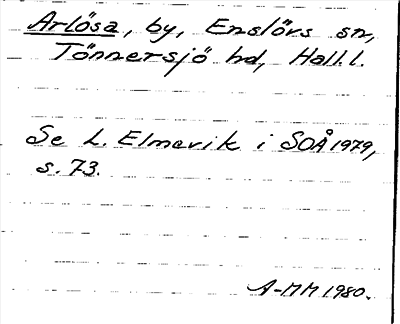 Arlösa, by, Enslövs sn,
Tönnersjö hd, Hall.l.
Se L. Elmevik i SOÅ 1979,
s. 73.
A-MM 1980.